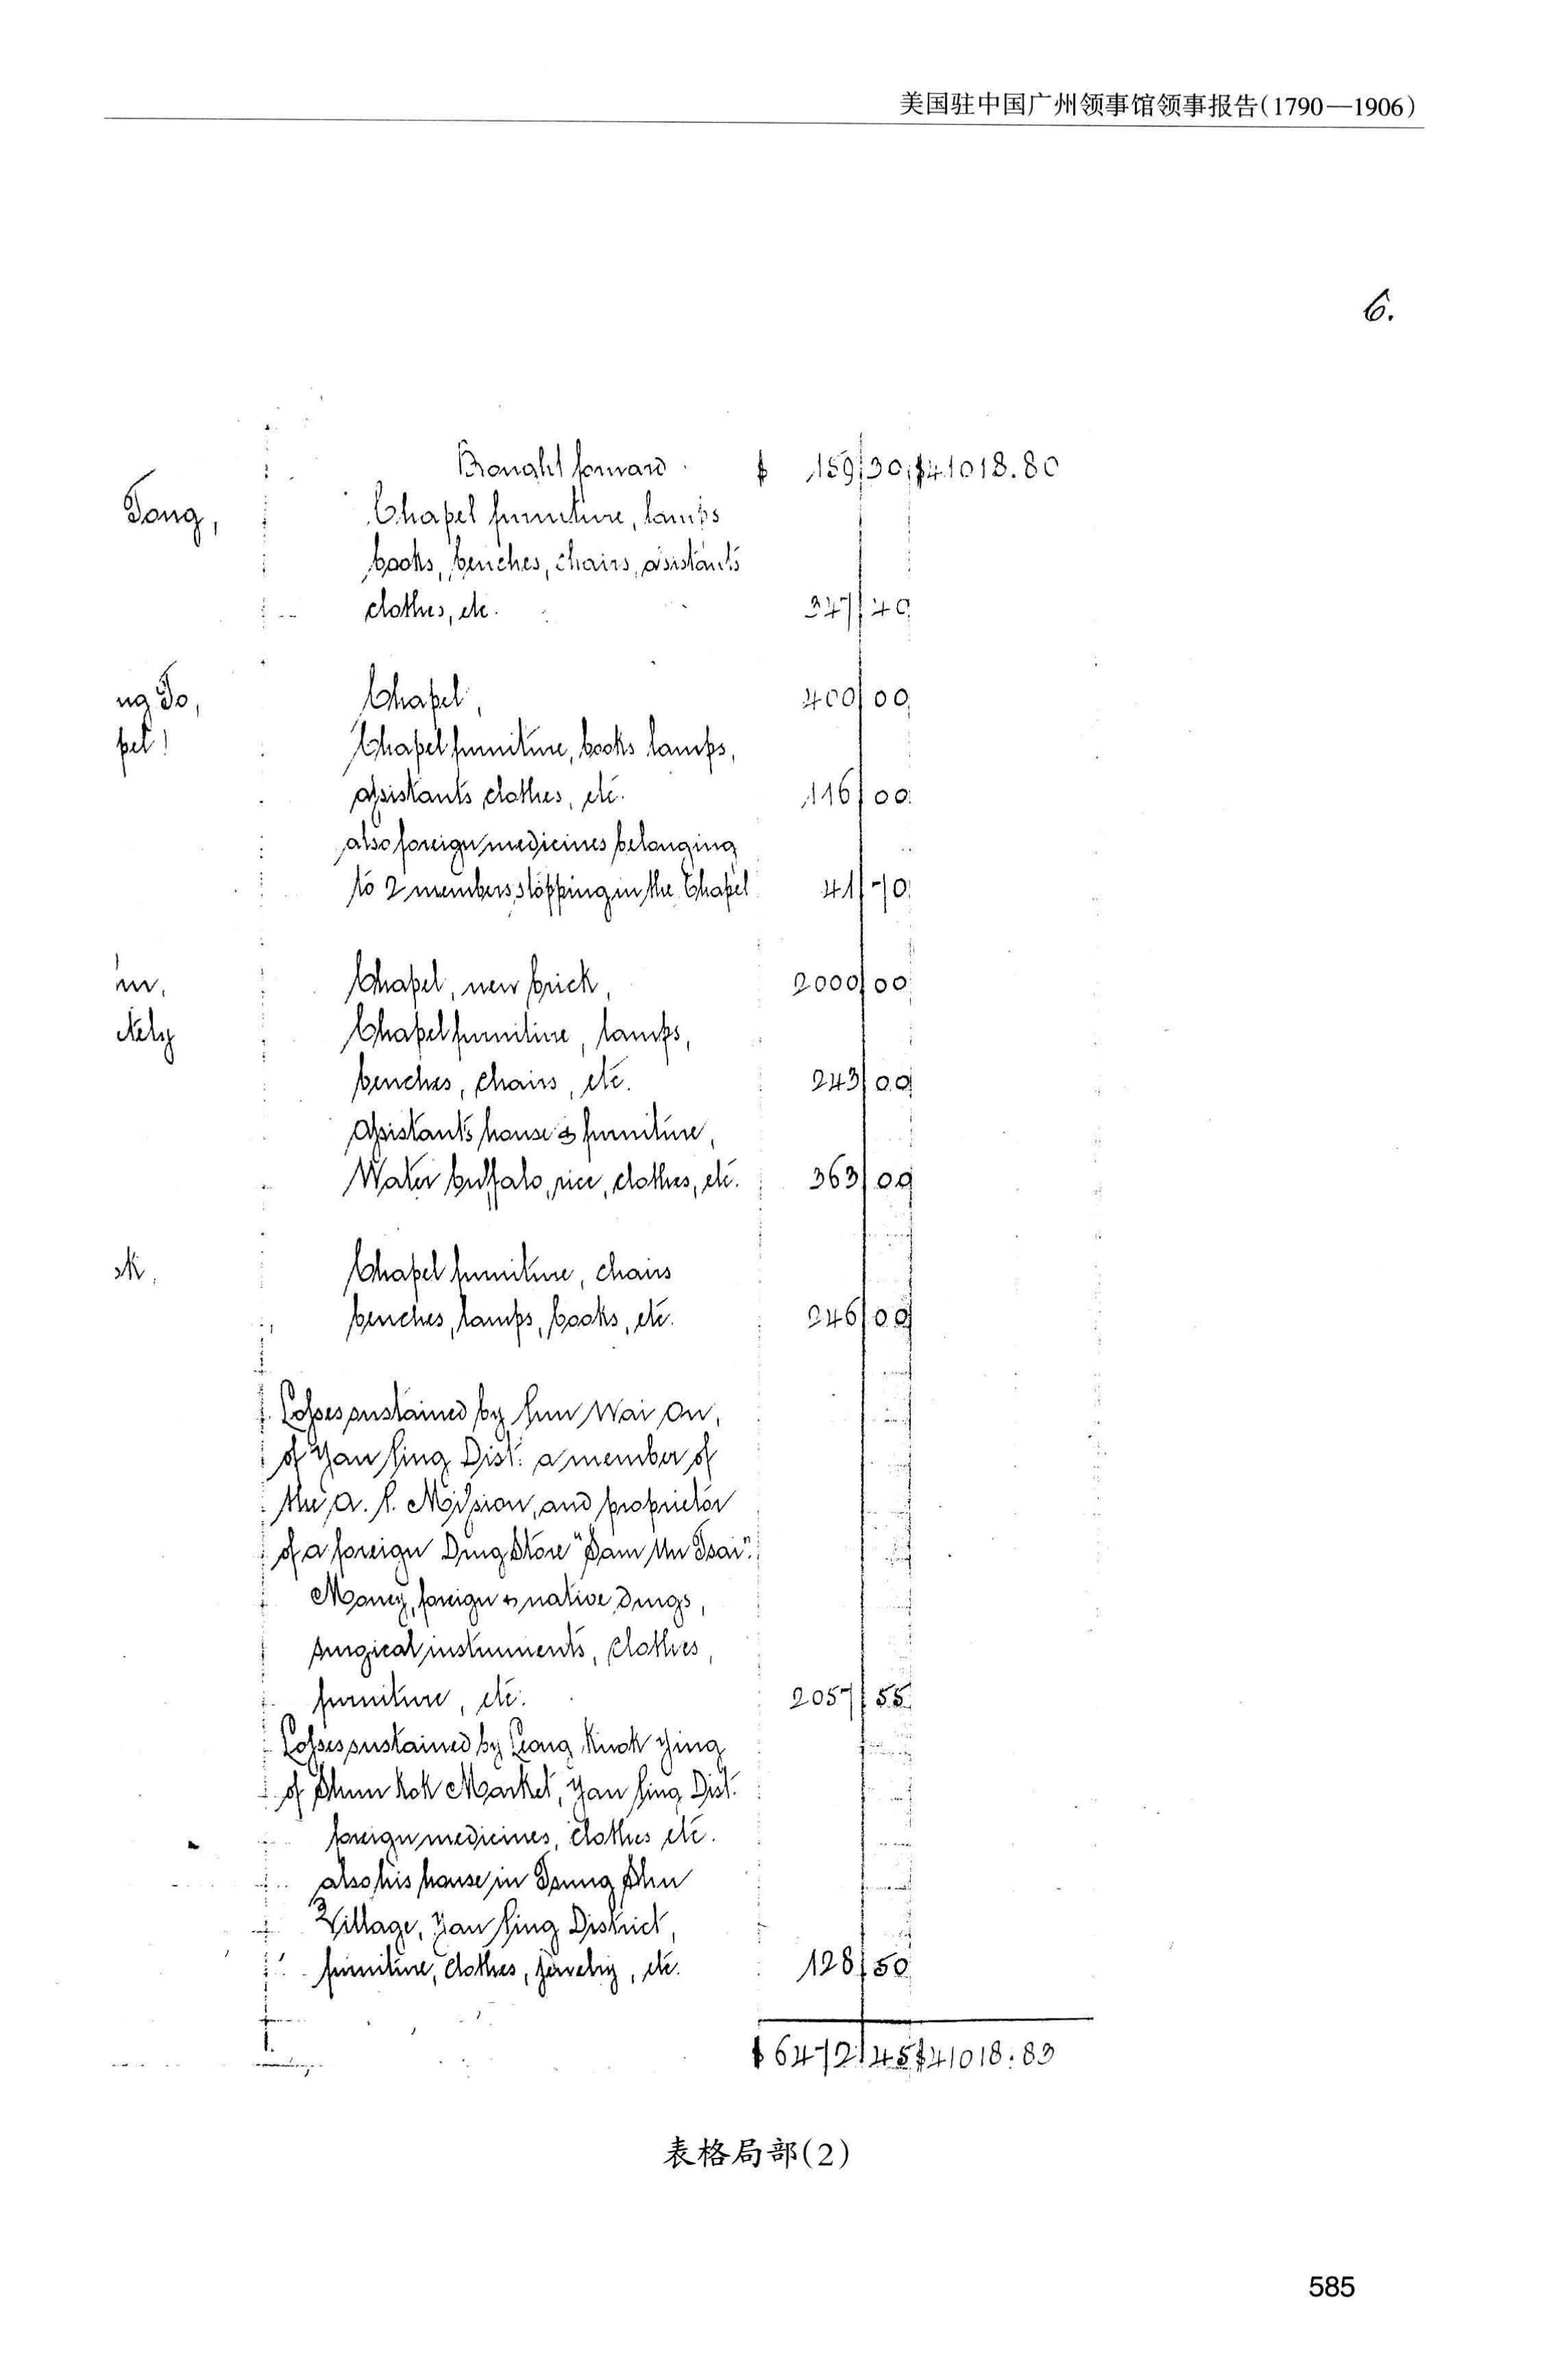 美国驻中国广州领事馆领事报告(1790—1906)
6.
Brought forward $ 159 30 $41018.80
Tong, Chapel furniture, lamps
books, benches, chairs, assistants
clothes, etc. 347 40
ng To, Chapel, 400 00
pel! Chapel furniture, books lamps,
assistants clothes, etc. 116 00
also foreign medicines belonging
to 2 members stopping in the Chapel 41 70
m, Chapel, new brick, 2000 00
etely Chapel furniture, lamps,
benches, chairs, etc. 243 00
Assistant's house & furniture,
Water buffalo, rice, clothes, etc. 363 00
ok, Chapel furniture, chairs
benches, lamps, books, etc. 246 00
Losses sustained by Wai On,
of Yan Ping Dist. a member of
the A. P. Mission, and proprietor
of a foreign Drug Store "Sam Un Tsai".
Money, foreign & native drugs,
surgical instruments, clothes,
furniture, etc. 2057 55
Losses sustained by Leong Kwok Ying
of Shun Kok Market, Yan Ping Dist.
foreign medicines, clothes etc.
also his house in Tsung Shu
Village, Yan Ping District,
furniture, clothes, jewelry, etc. 128 50
$6472 45 $41018.83
表格局部(2)
585